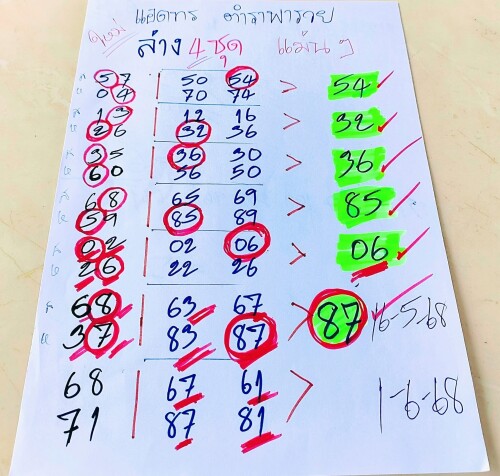 แอดทร ตำราพารวย
ล่าง 4 ชุด แม่นๆ
57 50 54 > 54
04 70 74
13 12 16 > 32
26 32 36
35 36 30 > 36
60 56 50
68 65 69 > 85
59 85 89
02 02 06 > 06
26 22 26
68 63 67 > 87 16-5-68
37 83 87
68 67 61 > 1-6-68
71 87 81